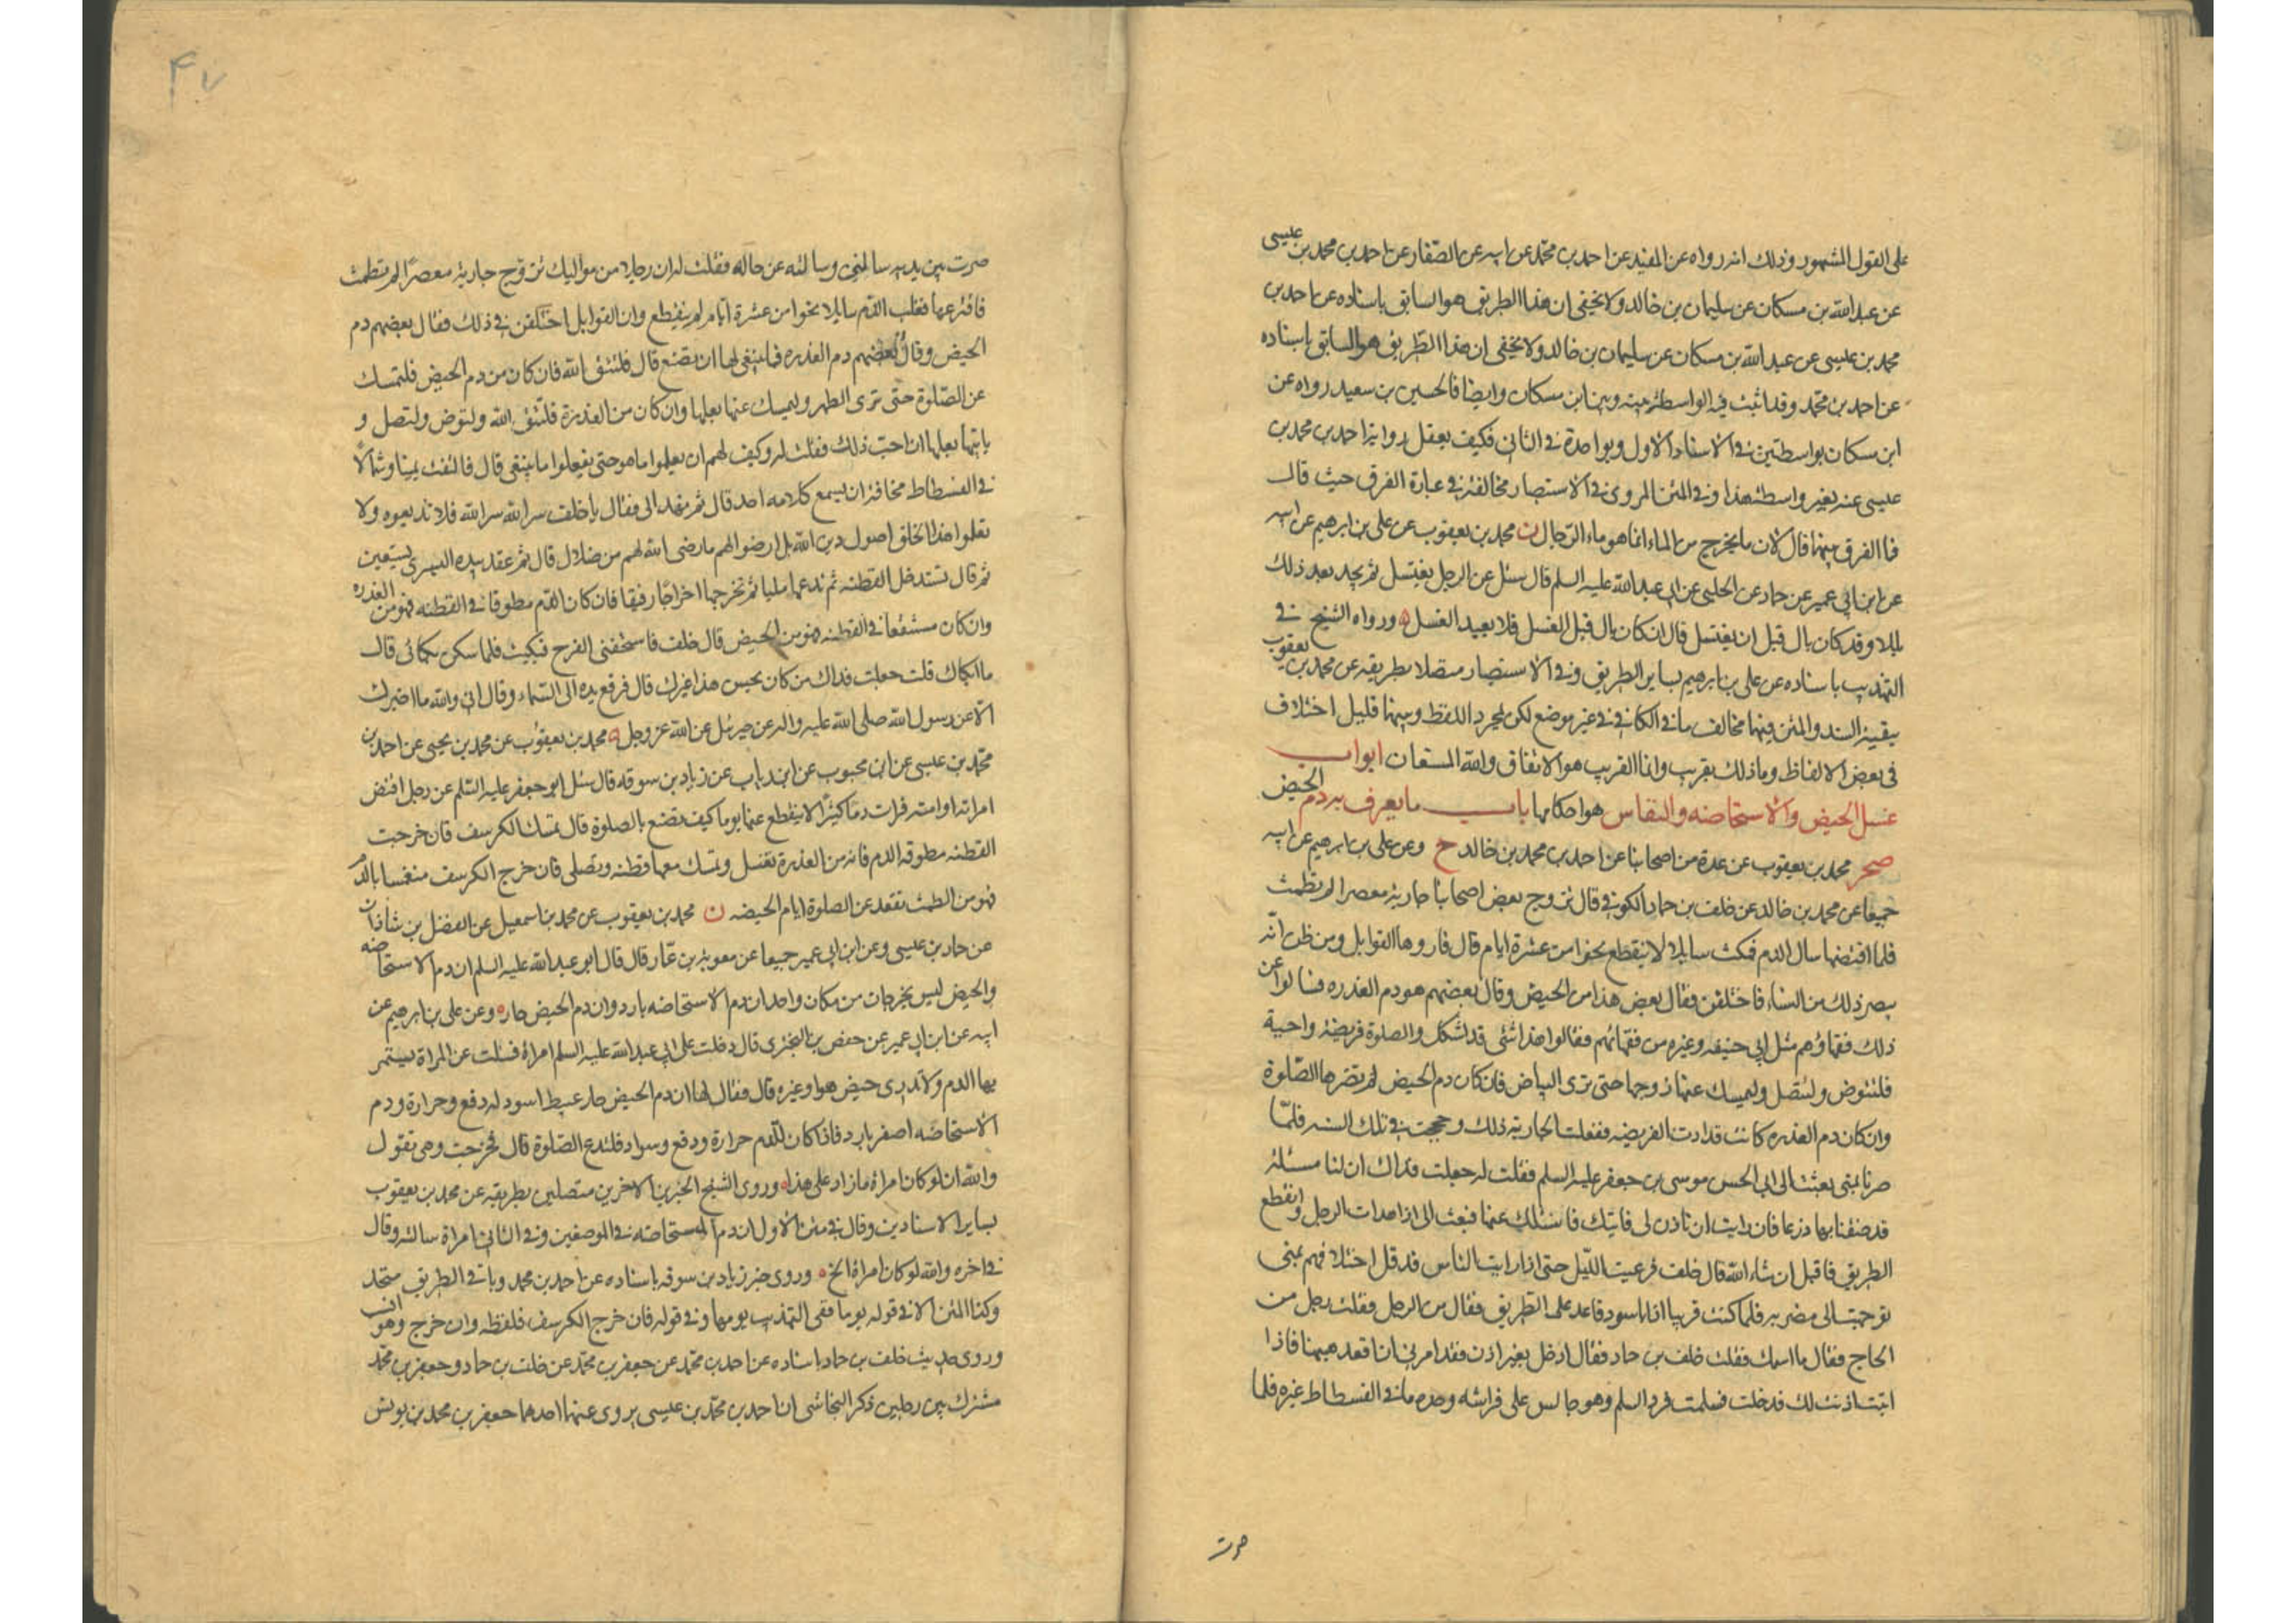 على القول المشهور وذلك انه رواه عن المفيد عن احمد بن محمد عن ابيه عن الصفار عن احمد بن محمد بن عيسى
عن عبد الله بن مسكان عن سليمان بن خالد ولا يخفى ان هذا الطريق هو السابق باسناده عن احمد بن
محمد بن عيسى عن عبد الله بن مسكان عن سليمان بن خالد ولا يخفى ان هذا الطريق هو السابق باسناده
عن احمد بن محمد وقد اثبت فيه الواسطة بينه وبين ابن مسكان وايضا فالحسين بن سعيد رواه عن
ابن مسكان بواسطتين في الاسناد الاول وبواحدة في الثاني فكيف يعقل رواية احمد بن محمد بن
عيسى عنه بغير واسطة هذا وفي المتن المروي في الاستبصار مخالفة في عبارة الفرق حيث قال
فما الفرق بينهما قال لان ما يخرج من الماء انما هو ماء الرجال ن محمد بن يعقوب عن علي بن ابرهيم عن ابيه
عن ابن ابي عمير عن حماد عن الحلبي عن ابي عبد الله عليه السلم قال سئل عن الرجل يغتسل ثم يجد بعد ذلك
بللا وقد كان بال قبل ان يغتسل قال ان كان بال قبل الغسل فلا يعيد الغسل ه ورواه الشيخ في
التهذيب باسناده عن علي بن ابرهيم بساير الطريق وفي الاستبصار متصلا بطريقه عن محمد بن يعقوب
ببقية السند والمتن فيهما مخالف ما في الكافي في غير موضع لكن لمجرد اللفظ وبينهما قليل اختلاف
في بعض الالفاظ وما ذلك بقريب وانما القريب هو الاتفاق والله المستعان ابواب
غسل الحيض والاستحاضه والنفاس هو احكامها باب ما يعرف به دم الحيض
صحر محمد بن يعقوب عن عدة من اصحابنا عن احمد بن محمد بن خالد ح وعن علي بن ابرهيم عن ابيه
جميعا عن محمد بن خالد عن خلف بن حماد الكوفي قال تزوج بعض اصحابنا جارية معصرا لم تطمث
فلما اقتضها سال الدم فمكث سايلا لا ينقطع نحوا من عشرة ايام قال فاروها القوابل ومن ظن انه
يبصر ذلك من النساء فاختلفن فقال بعض هذا من الحيض وقال بعضهم هو دم العذره فسالوا عن
ذلك فقهاؤهم مثل ابي حنيفه وغيره من فقهائهم فقالوا هذا شئ قد اشكل والصلوة فريضة واجبة
فلتتوض ولتصل وليمسك عنها زوجها حتى ترى البياض فان كان دم الحيض لم تضرها الصلوة
وان كان دم العذره كانت قد ادت الفريضه ففعلت الجارية ذلك وحججت في تلك السنه فلما
صرنا بمنى بعثت الى ابي الحسن موسى بن جعفر عليه السلم فقلت له جعلت فداك ان لنا مسئلة
قد ضقنا بها ذرعا فان رايت ان تاذن لي فاتيك فاسئلك عنها فبعث الي اذا هدات الرجل وانقطع
الطريق فاقبل ان شاء الله قال خلف فرعيت الليل حتى اذا رايت الناس قد قل اختلافهم بمنى
توجهت الى مضربه فلما كنت قريبا اذا انا اسود قاعد على الطريق فقال من الرجل فقلت رجل من
الحاج فقال ما اسمك فقلت خلف بن حماد فقال ادخل بغير اذن فقد امرني ان اقعد هيهنا فاذا
اتيت اذنت لك فدخلت فسلمت فرد السلم وهو جالس على فراشه وحده ما في الفسطاط غيره فلما
صرت
۴۷
صرت بين يديه سالمني وسالته عن حاله فقلت له ان رجلا من مواليك تزوج جارية معصرا لم تطمث
فافترعها فغلب الدم سايلا نحوا من عشرة ايام لم ينقطع وان القوابل اختلفن في ذلك فقال بعضهم دم
الحيض وقال بعضهم دم العذره فما ينبغي لها ان تصنع قال فلتتق الله فان كان من دم الحيض فلتمسك
عن الصلوة حتى ترى الطهر وليمسك عنها بعلها وان كان من العذرة فلتتق الله ولتوض ولتصل و
ياتيها بعلها ان احب ذلك فقلت له وكيف لهم ان يعلموا ما هو حتى يفعلوا ما ينبغي قال فالتفت يمينا وشمالا
في الفسطاط مخافة ان يسمع كلامه احد قال ثم نهد الي فقال يا خلف سر الله سر الله فلا تذيعوه ولا
تعلموا هذا الخلق اصول دين الله بل ارضوا لهم ما رضى الله لهم من ضلال قال ثم عقد بيده اليسرى تسعين
ثم قال تستدخل القطنه ثم تدعها مليا ثم تخرجها اخراجا رفيقا فان كان الدم مطوقا في القطنه فهو من العذره
وان كان مستنقعا في القطنه فهو من الحيض قال خلف فاستخفني الفرح فبكيت فلما سكن بكائي قال
ما ابكاك قلت جعلت فداك من كان يحسن هذا غيرك قال فرفع يده الى السماء وقال اني والله ما اخبرك
الا عن رسول الله صلى الله عليه واله عن جبرئيل عن الله عز وجل ه محمد بن يعقوب عن محمد بن يحيى عن احمد بن
محمد بن عيسى عن ابن محبوب عن ابن رئاب عن زياد بن سوقه قال سئل ابو جعفر عليه السلم عن رجل اقتض
امراته او امته فرات دما كثيرا لا ينقطع عنها يوما كيف تصنع بالصلوة قال تمسك الكرسف فان خرجت
القطنه مطوقه الدم فانه من العذرة تغتسل وتمسك معها قطنه وتصلي فان خرج الكرسف منغمسا بالدم
فهو من الطمث تقعد عن الصلوة ايام الحيضه ن محمد بن يعقوب عن محمد بن اسمعيل عن الفضل بن شاذان
عن حماد بن عيسى وعن ابن ابي عمير جميعا عن معويه بن عمار قال قال ابو عبد الله عليه السلم ان دم الاستحاضه
والحيض ليس يخرجان من مكان واحد ان دم الاستحاضه بارد وان دم الحيض حار ه وعن علي بن ابرهيم عن
ابيه عن ابن ابي عمير عن حفص بن البختري قال دخلت على ابي عبد الله عليه السلم امراة فسئلت عن المراة يستمر
بها الدم ولا تدري حيض هو او غيره قال فقال لها ان دم الحيض حار عبيط اسود له دفع وحرارة ودم
الاستحاضه اصفر بارد فاذا كان للدم حرارة ودفع وسواد فلتدع الصلوة قال فخرجت وهي تقول
والله ان لو كان امراة ما زاد على هذا ه وروى الشيخ الخبرين الاخرين متصلين بطريقه عن محمد بن يعقوب
بساير الاسنادين وقال في متن الاول ان دم المستحاضه في الموضعين وفي الثاني امراة سالته وقال
في اخره والله لو كان امراة الخ ه وروى خبر زياد بن سوقه باسناده عن احمد بن محمد وباقي الطريق متحد
وكذا المتن الا في قوله يوما ففي التهذيب يومها وفي قوله فان خرج الكرسف فلفظه وان خرج وهو انسب
وروى حديث خلف بن حماد باسناده عن احمد بن محمد عن جعفر بن محمد عن خلف بن حماد وجعفر بن محمد
مشترك بين رجلين ذكر النجاشي ان احمد بن محمد بن عيسى يروي عنهما احدهما جعفر بن محمد بن يونس